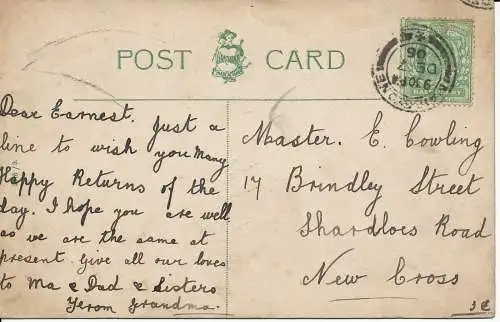 POST CARD
Dear Earnest. Just a
line to wish you Many
Happy Returns of the
day. I hope you are well
as we are the same at
present. Give all our loves
to Ma & Dad & Sisters
From Grandma.
Master. E. Cowling
17 Brindley Street
Shardloes Road
New Cross